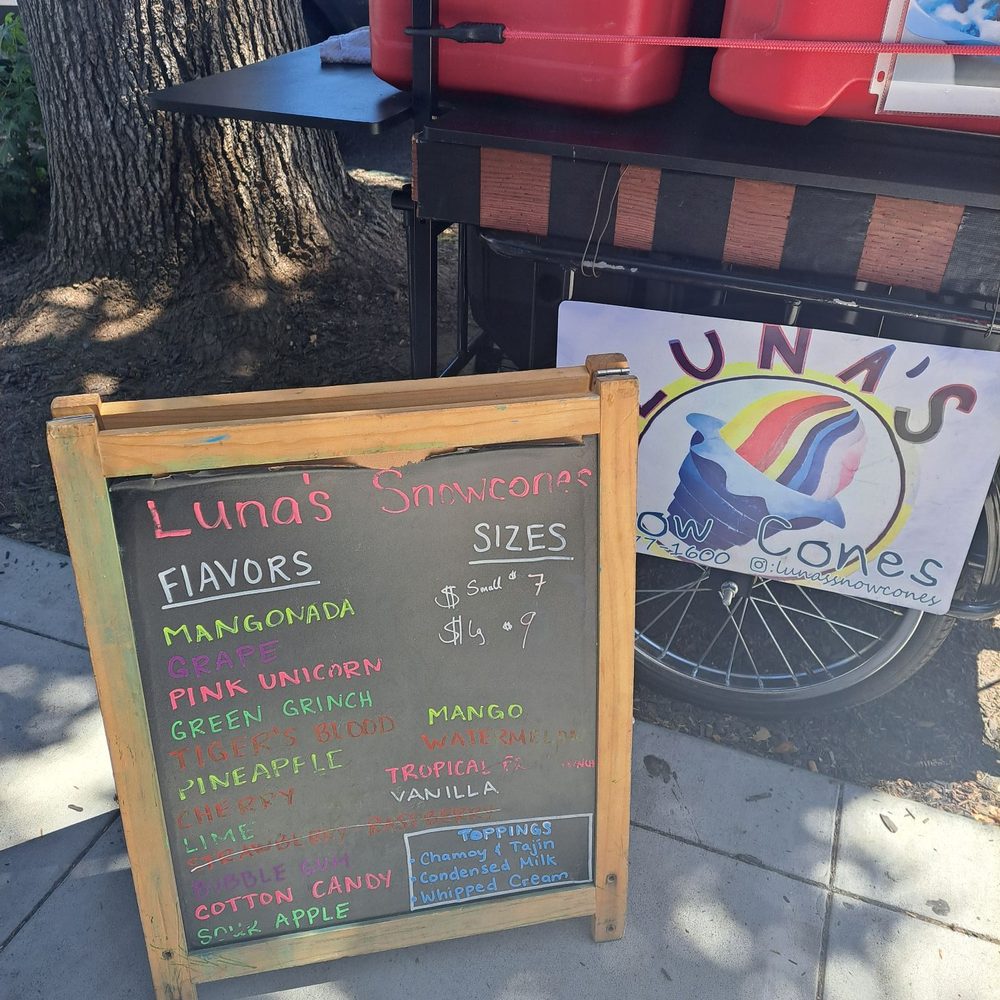 Luna's Snowcones
FlAVORS
SIZES
$ Small $7
$ lg $9
MANGONADA
GRAPE
PINK UNICORN
GREEN GRINCH
TIGER'S BLOOD
PINEAPPLE
CHERRY
LIME
STRAWBERRY RASPBERRY
BUBBLE GUM
COTTON CANDY
SOUR APPLE
MANGO
WATERMELON
TROPICAL
VANILLA
TOPPINGS
• Chamoy & Tajin
• Condensed Milk
• Whipped Cream
LUNA'S
ow Cones
77-1600
:lunassnowcones